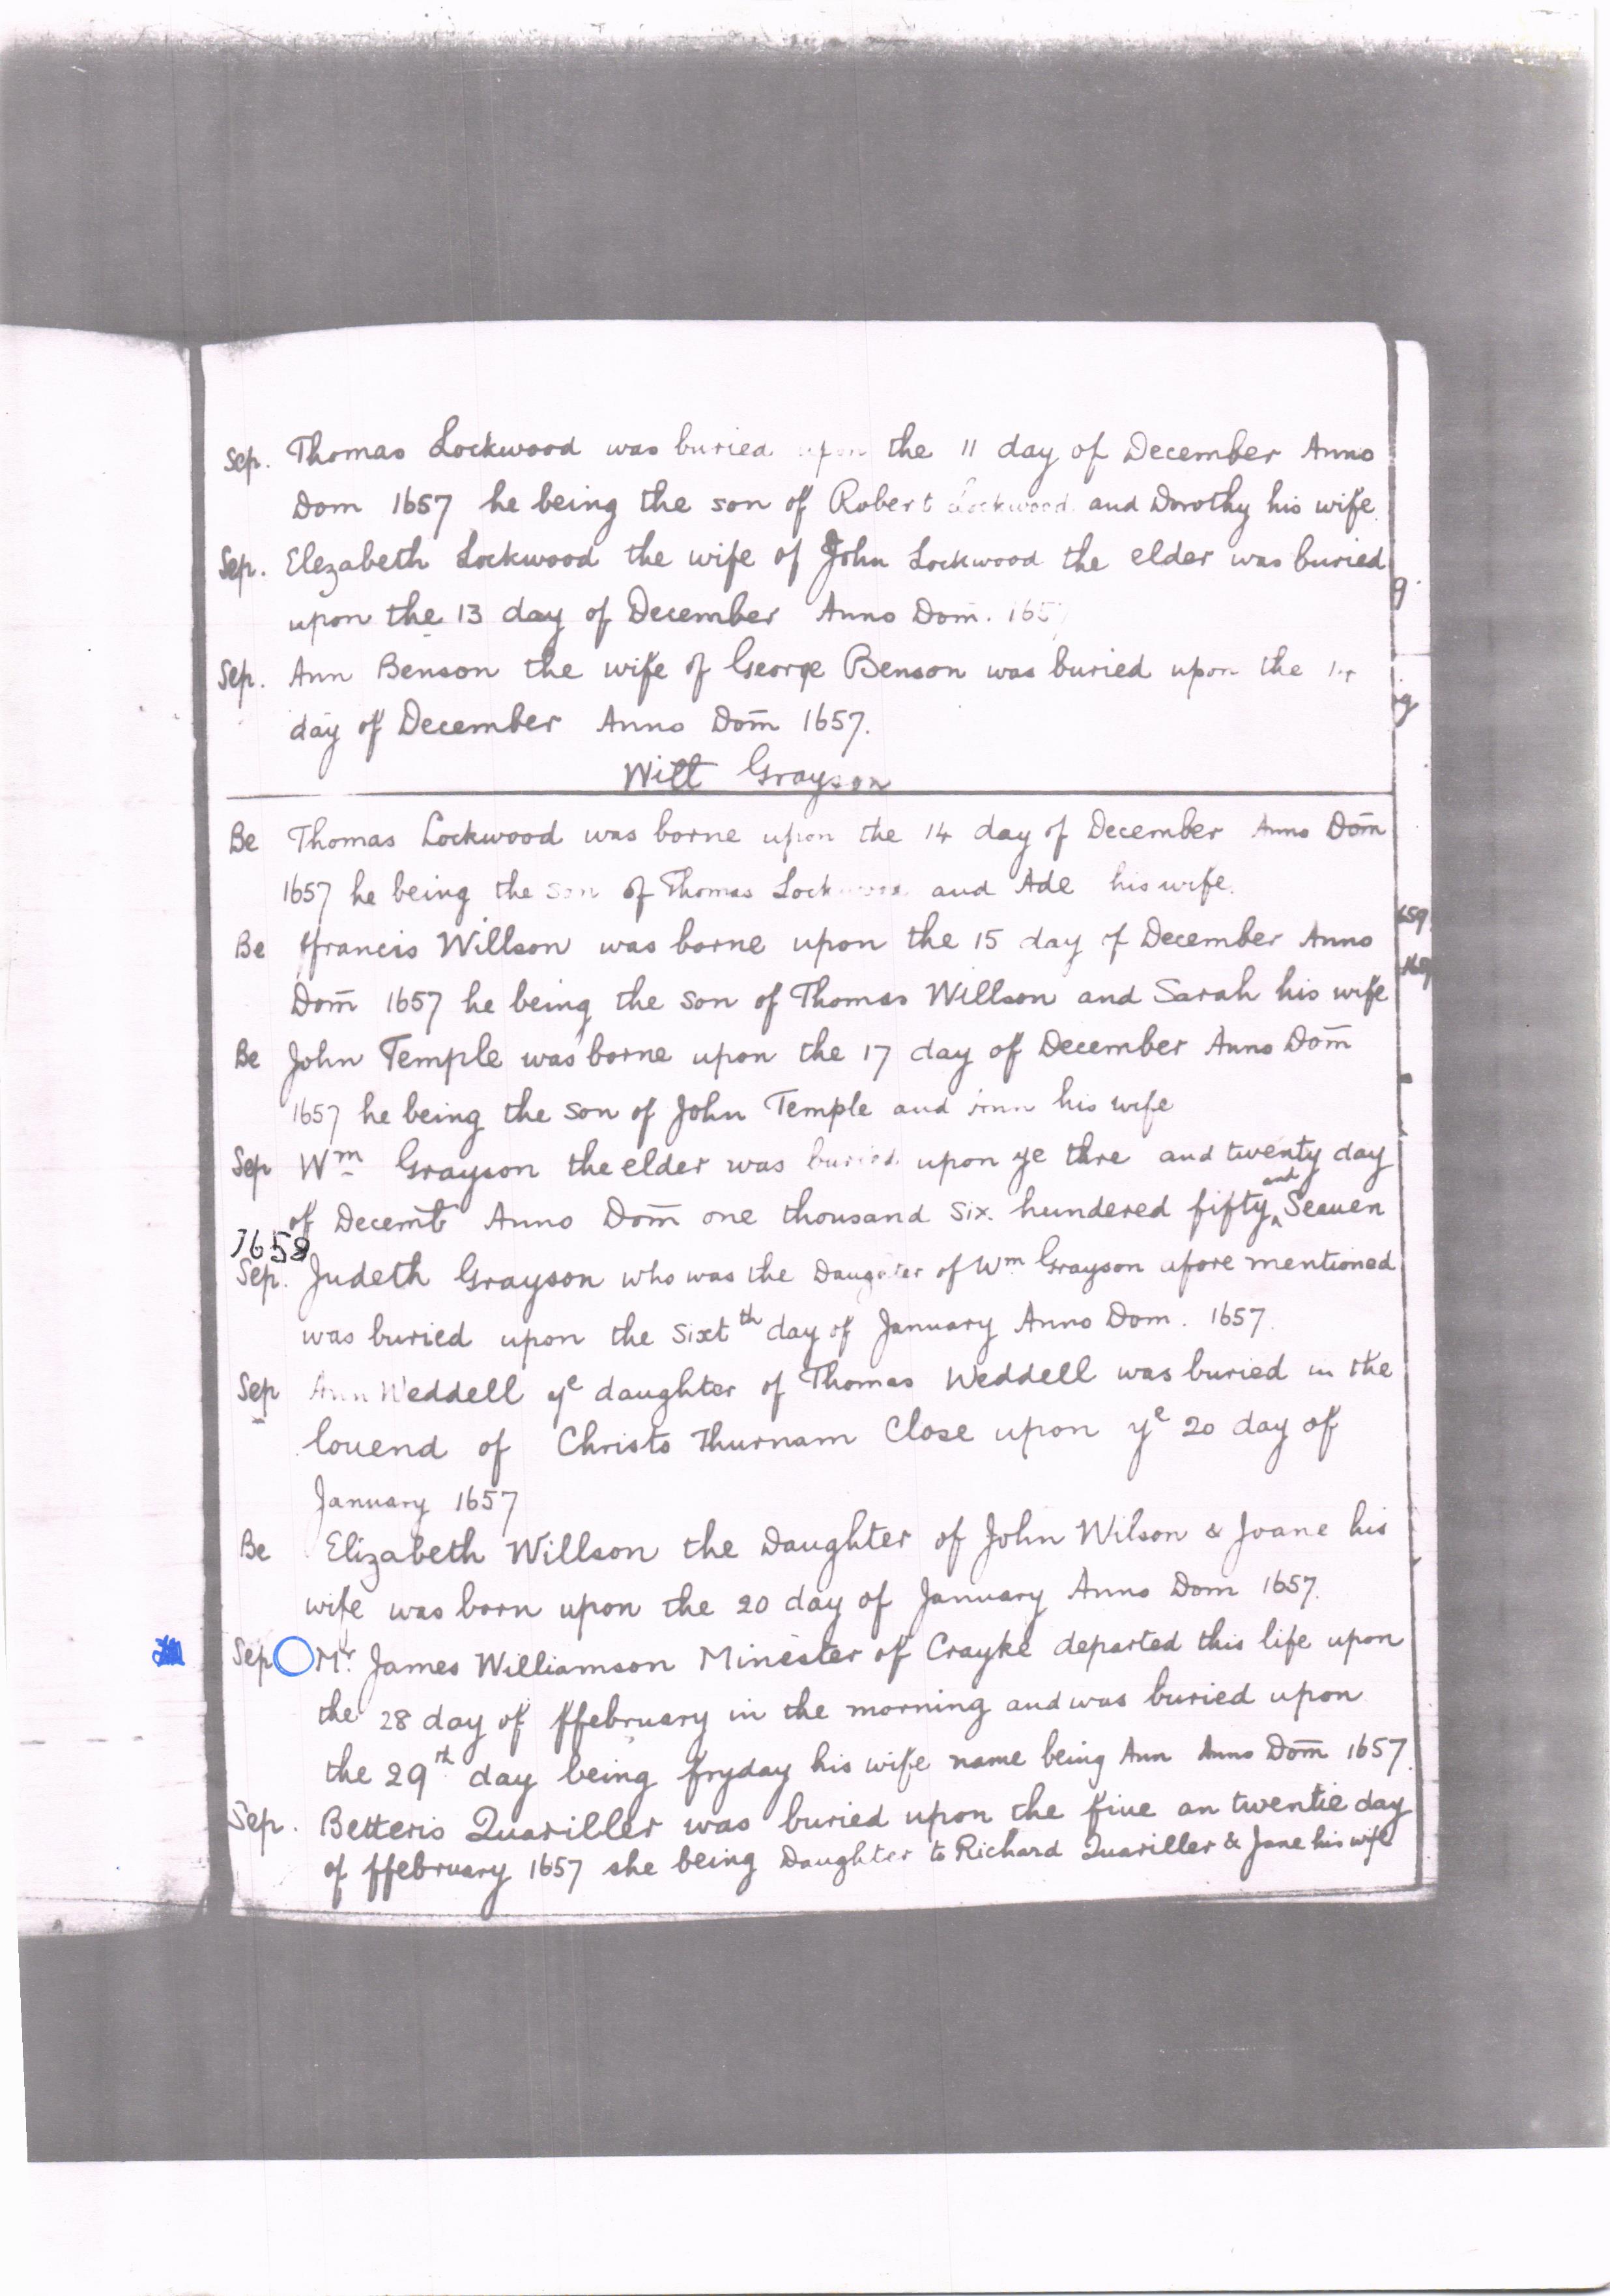 Sep. Thomas Lockwood was buried upon the 11 day of December Anno
Dom 1657 he being the son of Robert Lockwood and Dorothy his wife
Sep. Elezabeth Lockwood the wife of John Lockwood the elder was buried
upon the 13 day of December Anno Dom. 165
Sep. Ann Benson the wife of George Benson was buried upon the
day of December Anno Dom̄ 1657.
Witt Grayson
Be Thomas Lockwood was borne upon the 14 day of December Anno Dom̄
1657 he being the son of Thomas Lockwood and Ade his wife.
Be ffrancis Willson was borne upon the 15 day of December Anno
Dom̄ 1657 he being the son of Thomas Willson and Sarah his wife
Be John Temple was borne upon the 17 day of December Anno Dom̄
1657 he being the son of John Temple and Ann his wife
Sep Wm Grayson the elder was buried upon ye thre and twenty day
of Decemb Anno Dom̄ one thousand six. hundered fifty and Seauen
1658
Sep. Judeth Grayson who was the Daughter of Wm Grayson afore mentioned
was buried upon the Sixt th day of January Anno Dom. 1657.
Sep Ann Weddell ye daughter of Thomas Weddell was buried in the
louend of Christo Thurnam Close upon ye 20 day of
January 1657
Be Elizabeth Willson the Daughter of John Wilson & Joane his
wife was born upon the 20 day of January Anno Dom 1657.
Sep Mr. James Williamson Minester of Crayke departed this life upon
the 28 day of ffebruary in the morning and was buried upon
the 29th day being fryday his wife name being Ann Anno Dom̄ 1657.
Sep. Betteris Quariller was buried upon the fiue an twentie day
of ffebruary 1657 she being Daughter to Richard Quariller & Jane his wife